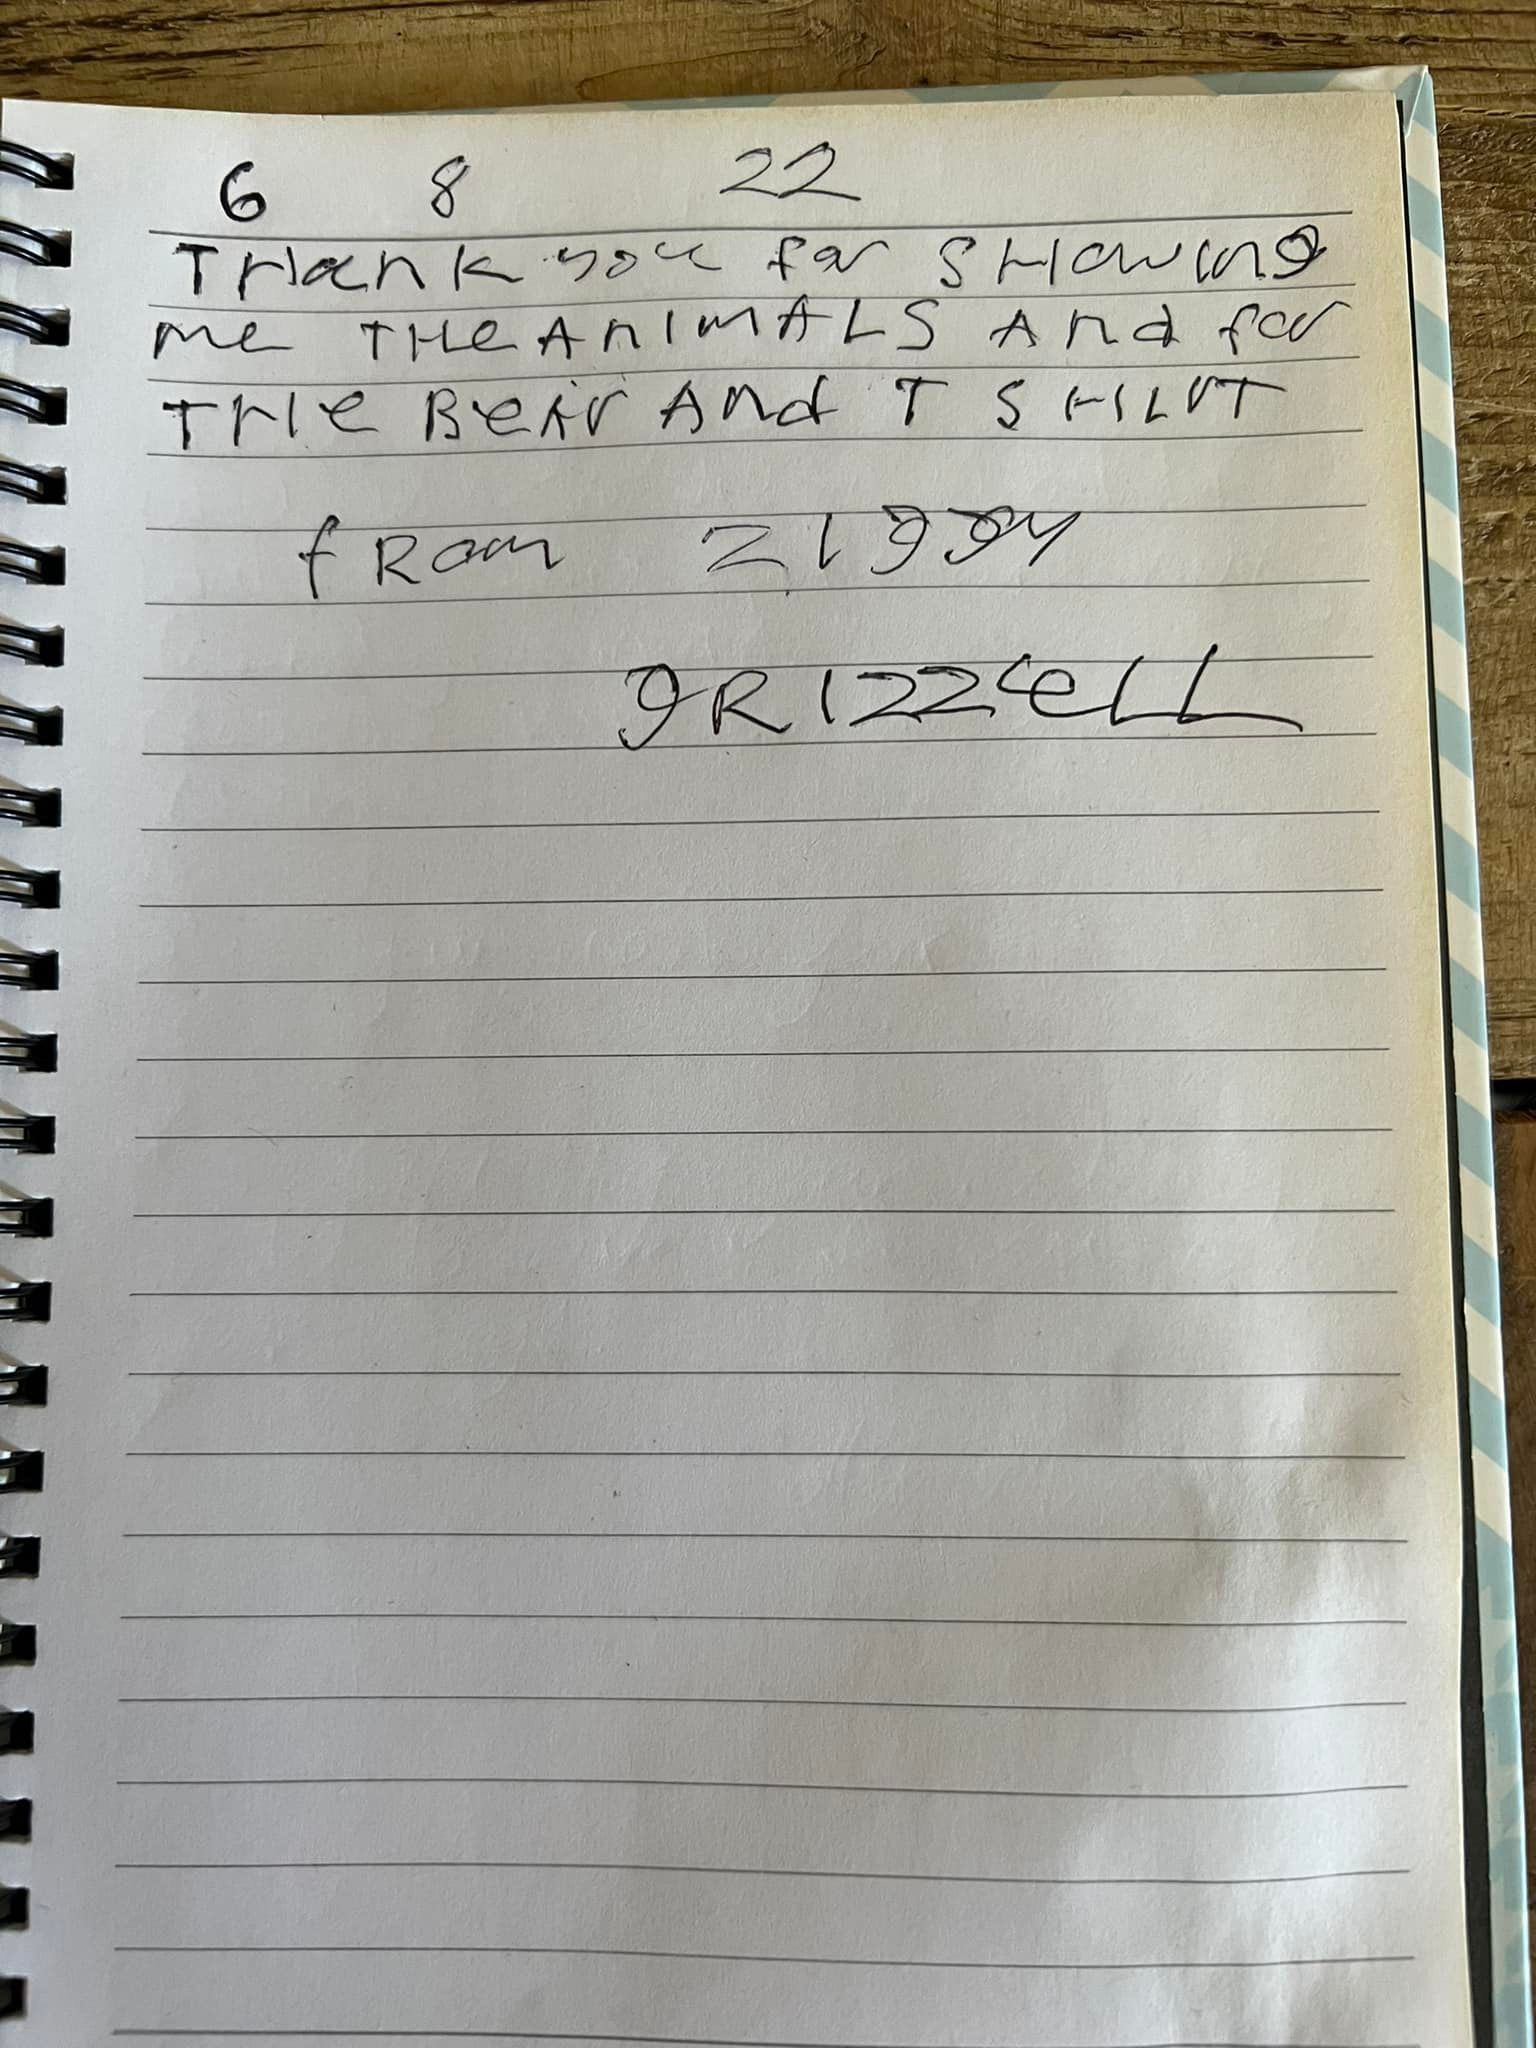 6 8 22
THank you for SHowing
me THe AnIMALS And for
THe BeAr And T SHIrT
from Ziggy
gRIZZeLL